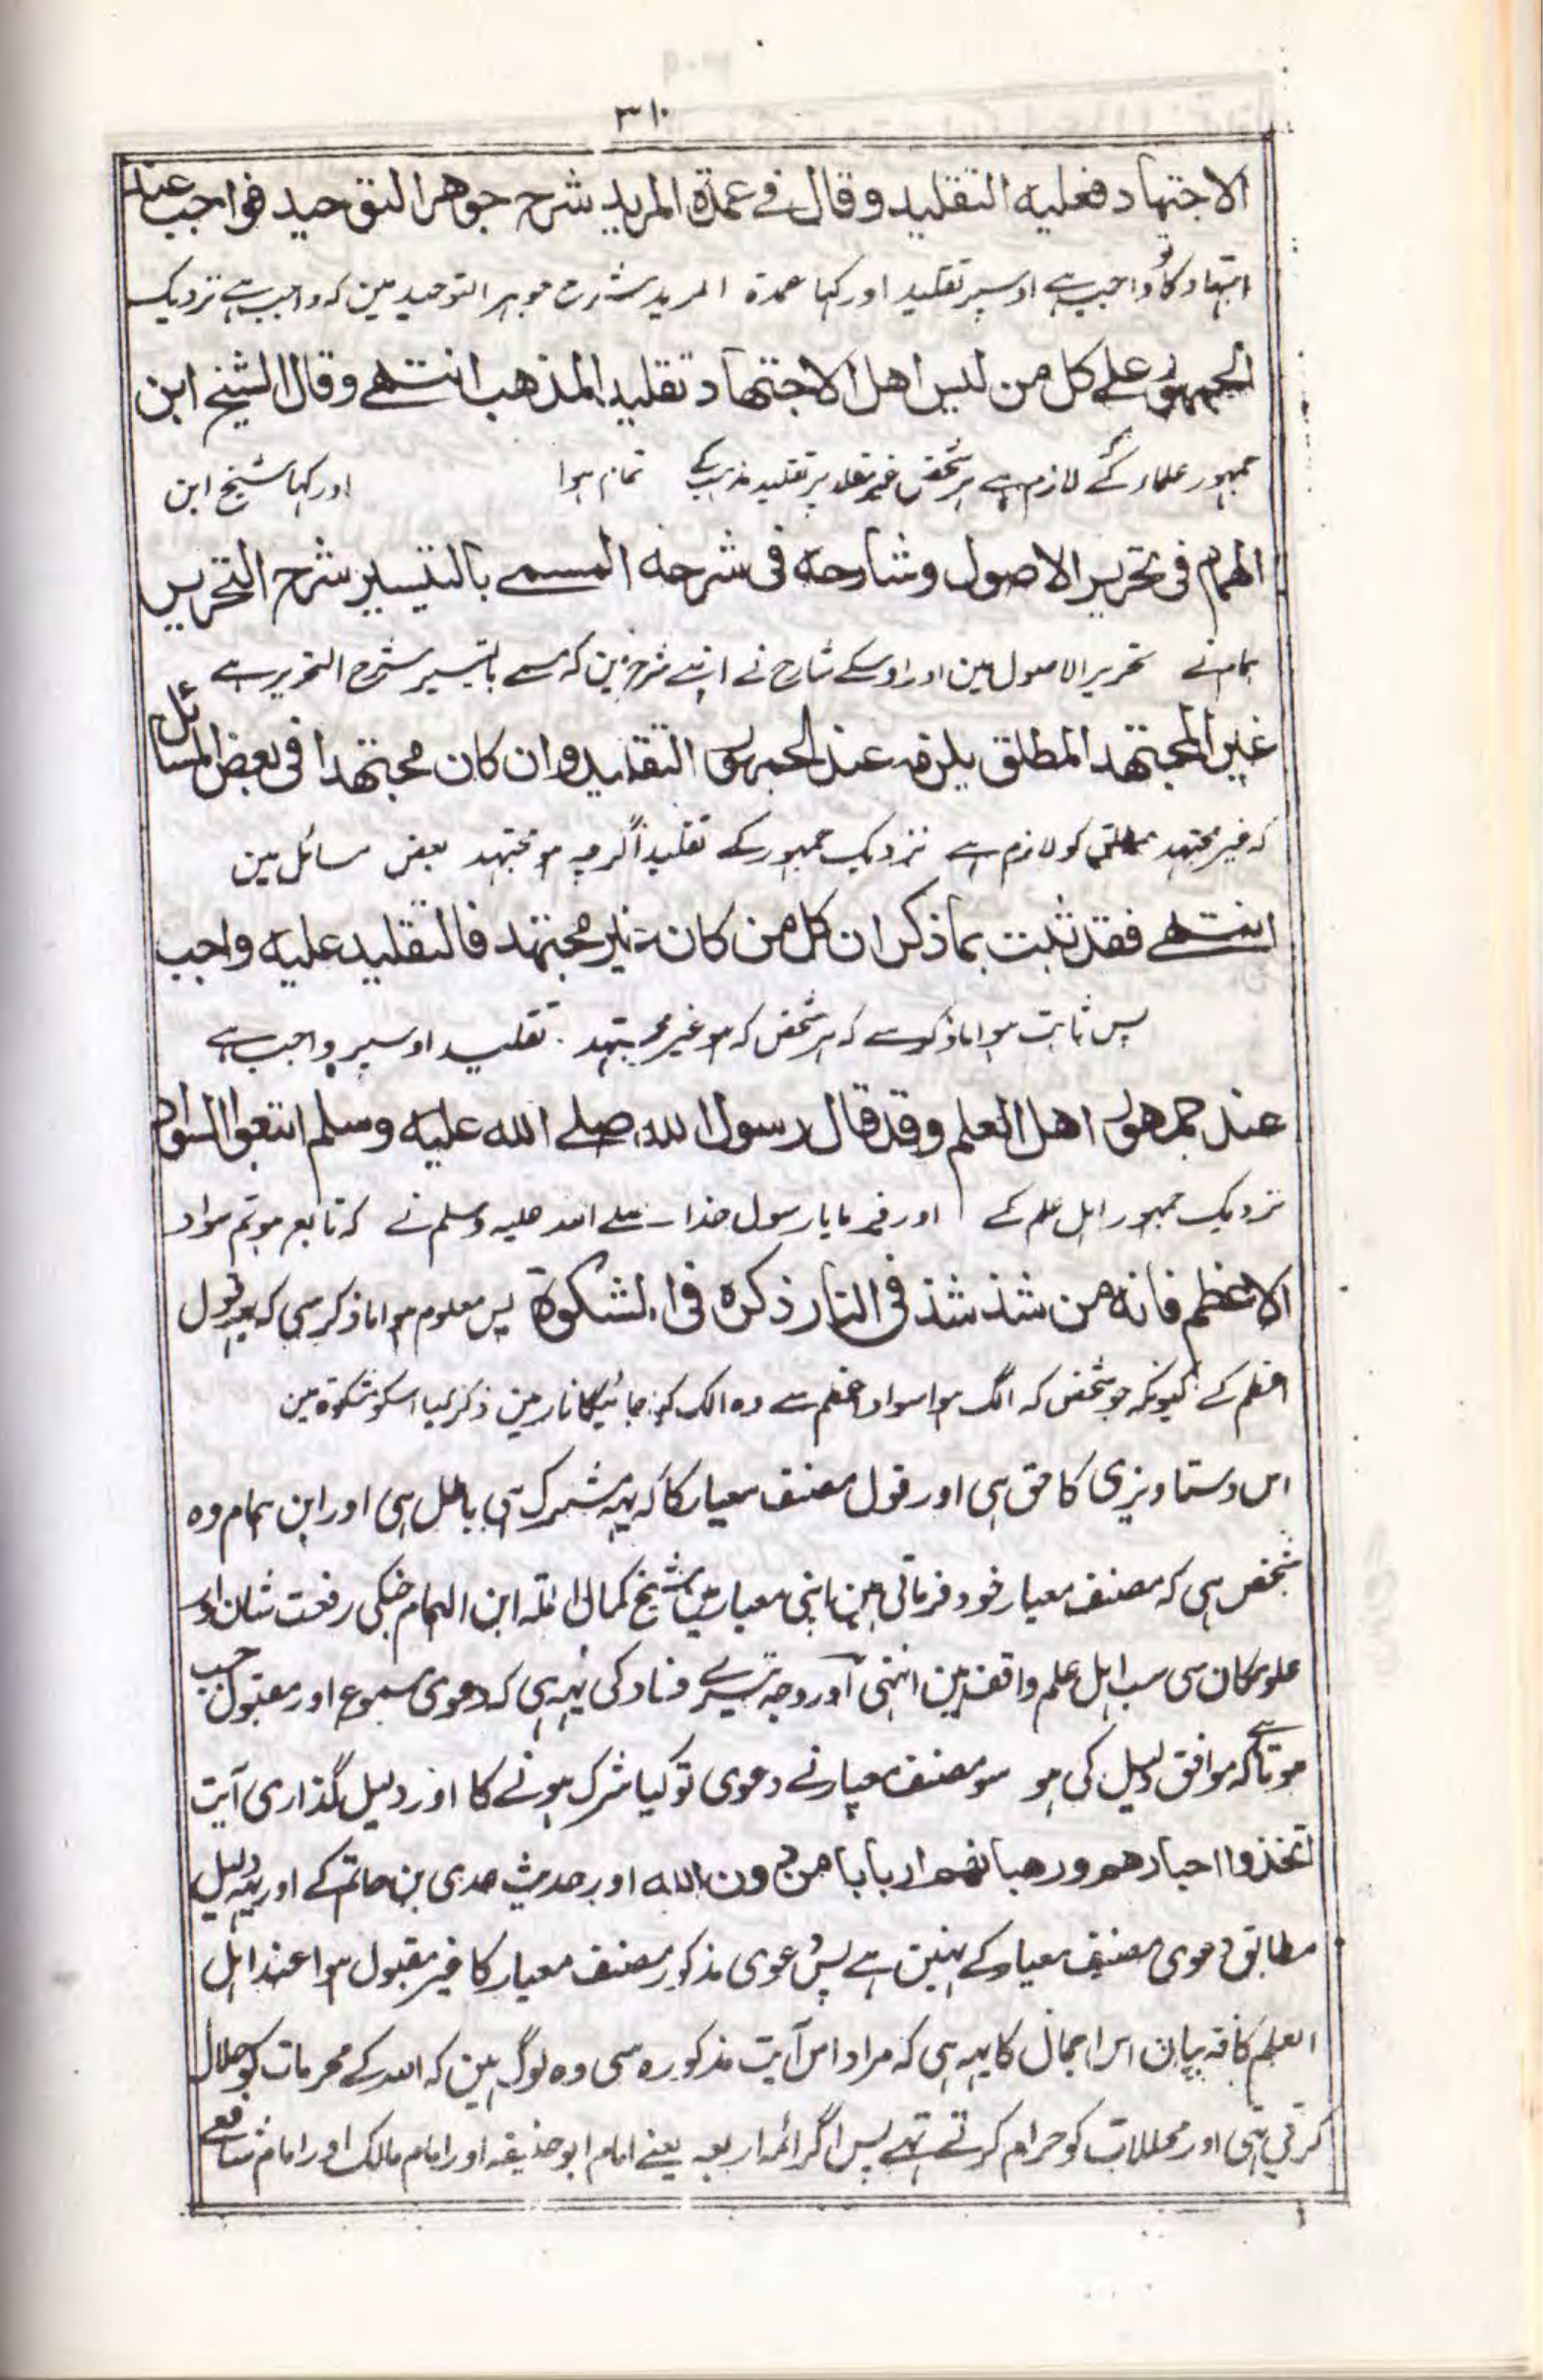 ٣١٠
الاجتهاد فعليه التقليد وقال في عمدة المريد شرح جوهر التوحيد فواجب عند
اجتهاد کا تو واجب ہے اوسپر تقلید اور کہا عمدة المرید شرح جوہر التوحید مین کہ واجب ہے نزدیک
الجمهور على كل من ليس اهل الاجتهاد تقليد المذهب انتهى وقال الشيخ ابن
جمہور علماء کے لازم ہے ہر شخص غیر مقلد پر تقلید مذہب کے تمام ہوا اور کہا شیخ ابن
الهمام في تحرير الاصول وشارحه في شرحه المسمى بالتيسير شرح التحرير
ہمام نے تحریر الاصول مین اور اوسکے شارح نے اپنے شرح مین کہ مسمے بالتیسیر شرح التحریر ہے
غير المجتهد المطلق يلزمه عند الجمهور التقليد وان كان مجتهدا في بعض المسائل
کہ غیر مجتہد مطلق کو لازم ہے نزدیک جمہور کے تقلید اگرچہ ہو مجتہد بعض مسائل مین
انتهى فقد ثبت بما ذكر ان كل من كان غير مجتهد فالتقليد عليه واجب
پس ثابت ہوا ماذکر سے کہ ہر شخص کہ ہو غیر مجتہد تقلید اوسپر واجب ہے
عند جمهور اهل العلم وقد قال رسول الله صلى الله عليه وسلم اتبعوا السواد
نزدیک جمہور اہل علم کے اور فرمایا رسول خدا صلے اللہ علیہ وسلم نے کہ تابع ہو تم سواد
الاعظم فانه من شذ شذ في النار ذكره في المشكوة پس معلوم ہوا ماذکر سی کہ یہ قول
اعظم کے کیونکہ جو شخص کہ الگ ہوا سواد اعظم سے وہ الگ جائیگا نار مین ذکر کیا اسکو مشکوة مین
اس دستاویزی کا حق ہی اور قول مصنف معیار کا کہ یہ شرک ہی باطل ہی اور ابن ہمام وہ
شخص ہی کہ مصنف معیار خود فرماتی ہین اپنی معیار مین شیخ کمال الملة ابن الہمام جنکی رفعت شان اور
علو مکان سی سب اہل علم واقف ہین انتہی اور وجہ تیسرے فساد کی یہ ہی کہ دعوی مسموع اور مقبول جب
ہوتا ہے کہ موافق دلیل کی ہو سو مصنف معیار نے دعوی تو کیا شرک ہونے کا اور دلیل گذاری آیت
اتخذوا احبارهم ورهبانهم اربابا من دون الله اور حدیث عدی بن حاتم کے اور یہ دلیل
مطابق دعوی مصنف معیار کے نہین ہے پس دعوی مذکور مصنف معیار کا غیر مقبول ہوا عند اہل
العلم کافہ بیان اس اجمال کا یہ ہی کہ مراد اس آیت مذکورہ سی وہ لوگ ہین کہ اللہ کے محرمات کو حلال
کرتی تہی اور محللات کو حرام کرتے تہے پس اگر ائمہ اربعہ یعنے امام ابو حنیفہ اور امام مالک اور امام شافعے